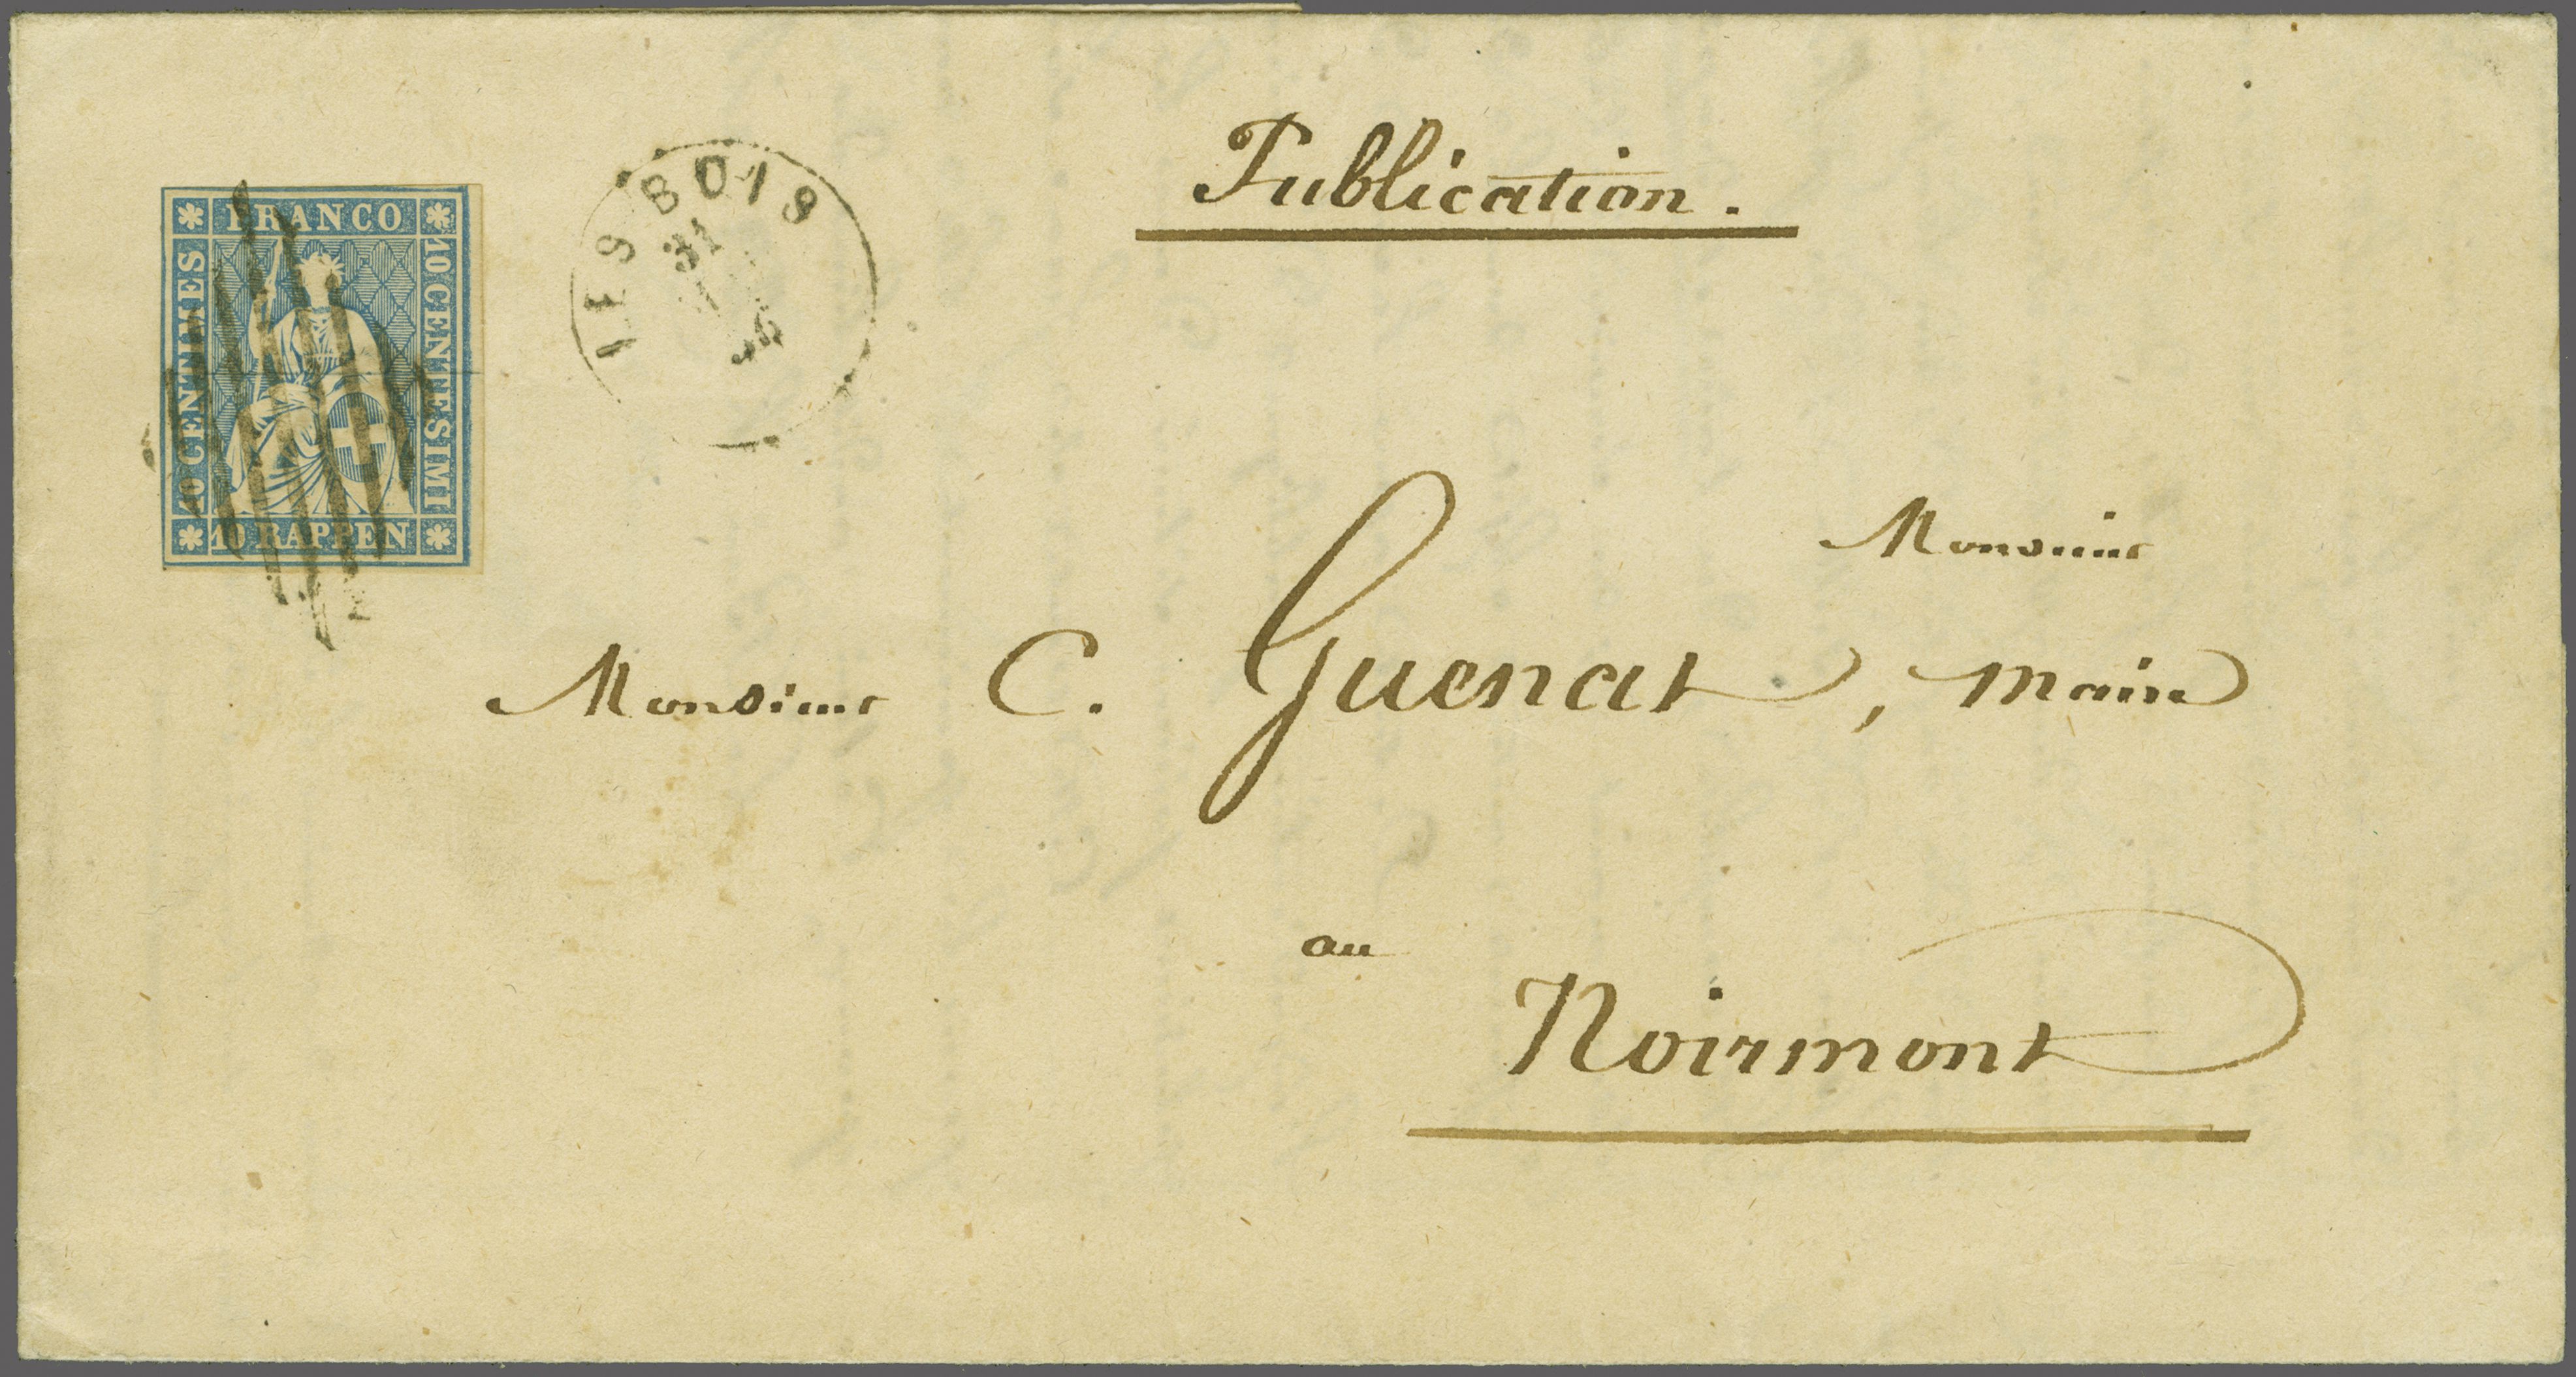 FRANCO
10 CENTIMES
10 CENTESIMI
10 RAPPEN
LES BOIS
31
Publication.
Monsieur
Monsieur C. Guenat, maire
au
Noirmont